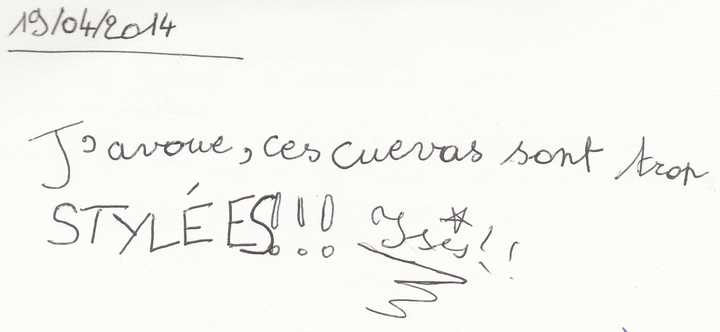 19/04/2014
J'avoue, ces cuevas sont trop
STYLÉES!!! Ysé!!